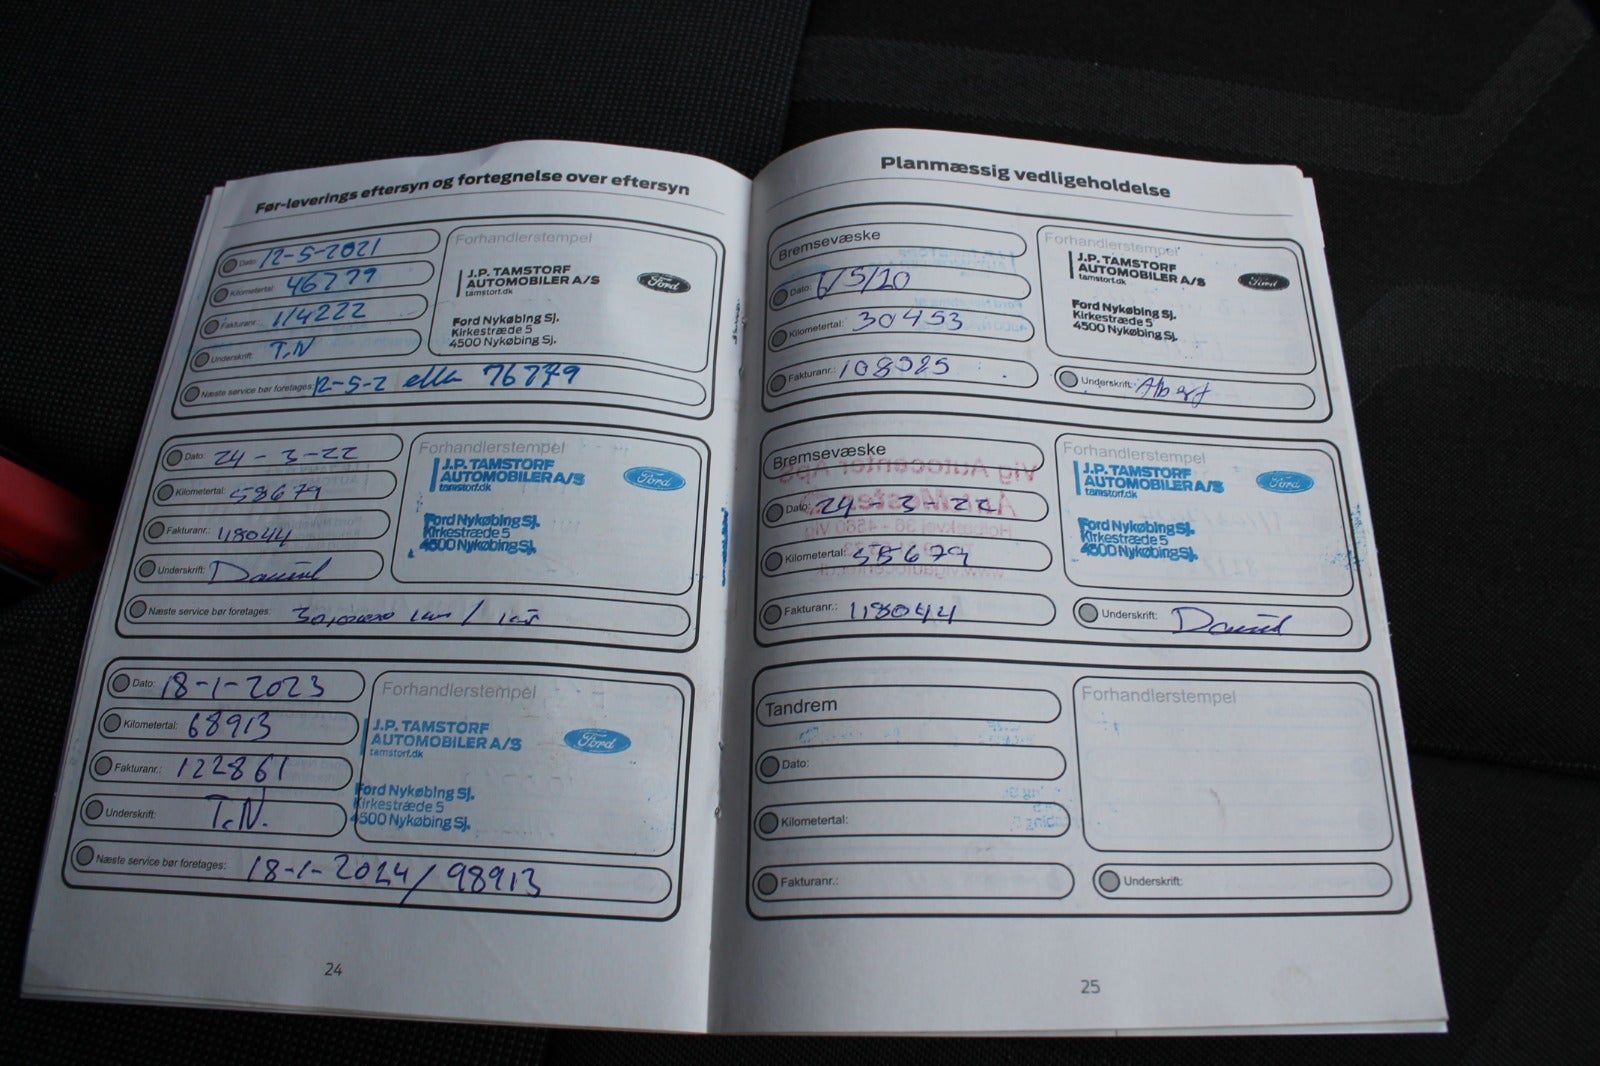 Før-leverings eftersyn og fortegnelse over eftersyn
Dato: 12-5-2021
Kilometertal: 46779
Fakturanr.: 114222
Underskrift: T.N
Næste service bør foretages: 12-5-2 eller 76779
Forhandlerstempel
J.P. TAMSTORF
AUTOMOBILER A/S
tamstorf.dk
Ford
Ford Nykøbing Sj.
Kirkestræde 5
4500 Nykøbing Sj.
Dato: 24-3-22
Kilometertal: 58679
Fakturanr.: 118044
Underskrift: Daniel
Næste service bør foretages:
Forhandlerstempel
J.P. TAMSTORF
AUTOMOBILER A/S
tamstorf.dk
Ford
Ford Nykøbing Sj.
Kirkestræde 5
4500 Nykøbing Sj.
Dato: 18-1-2023
Kilometertal: 68913
Fakturanr.: 122861
Underskrift: T.N.
Næste service bør foretages: 18-1-2024/98913
Forhandlerstempel
J.P. TAMSTORF
AUTOMOBILER A/S
tamstorf.dk
Ford
Ford Nykøbing Sj.
Kirkestræde 5
4500 Nykøbing Sj.
24
Planmæssig vedligeholdelse
Bremsevæske
Dato: 6/5/20
Kilometertal: 30453
Fakturanr.:
Forhandlerstempel
J.P. TAMSTORF
AUTOMOBILER A/S
tamstorf.dk
Ford
Ford Nykøbing Sj.
Kirkestræde 5
4500 Nykøbing Sj.
Underskrift: Albert
Bremsevæske
Dato: 24-3-22
Kilometertal: 58679
Fakturanr.: 118044
Forhandlerstempel
J.P. TAMSTORF
AUTOMOBILER A/S
tamstorf.dk
Ford
Ford Nykøbing Sj.
Kirkestræde 5
4500 Nykøbing Sj.
Underskrift: Daniel
Tandrem
Dato:
Kilometertal:
Fakturanr.:
Forhandlerstempel
Underskrift:
25